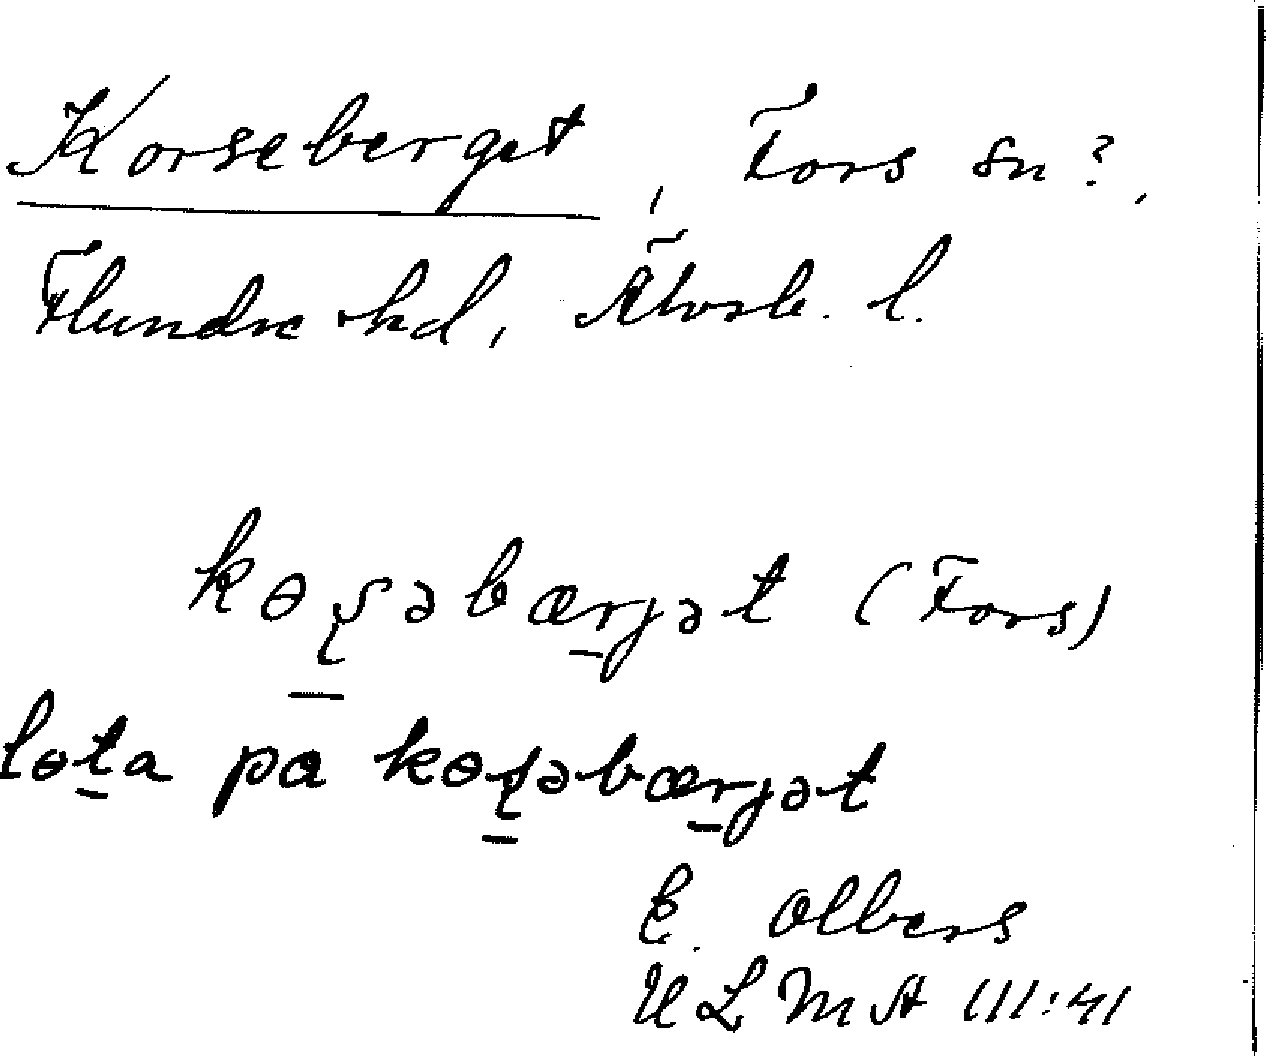 Korseberget, Fors sn?,
Flundre hd, Älvsb. l.
kɵʂəbærjət (Fors)
lɵta pa kɵʂəbærjət
E. Olbers
ULMA 111:41